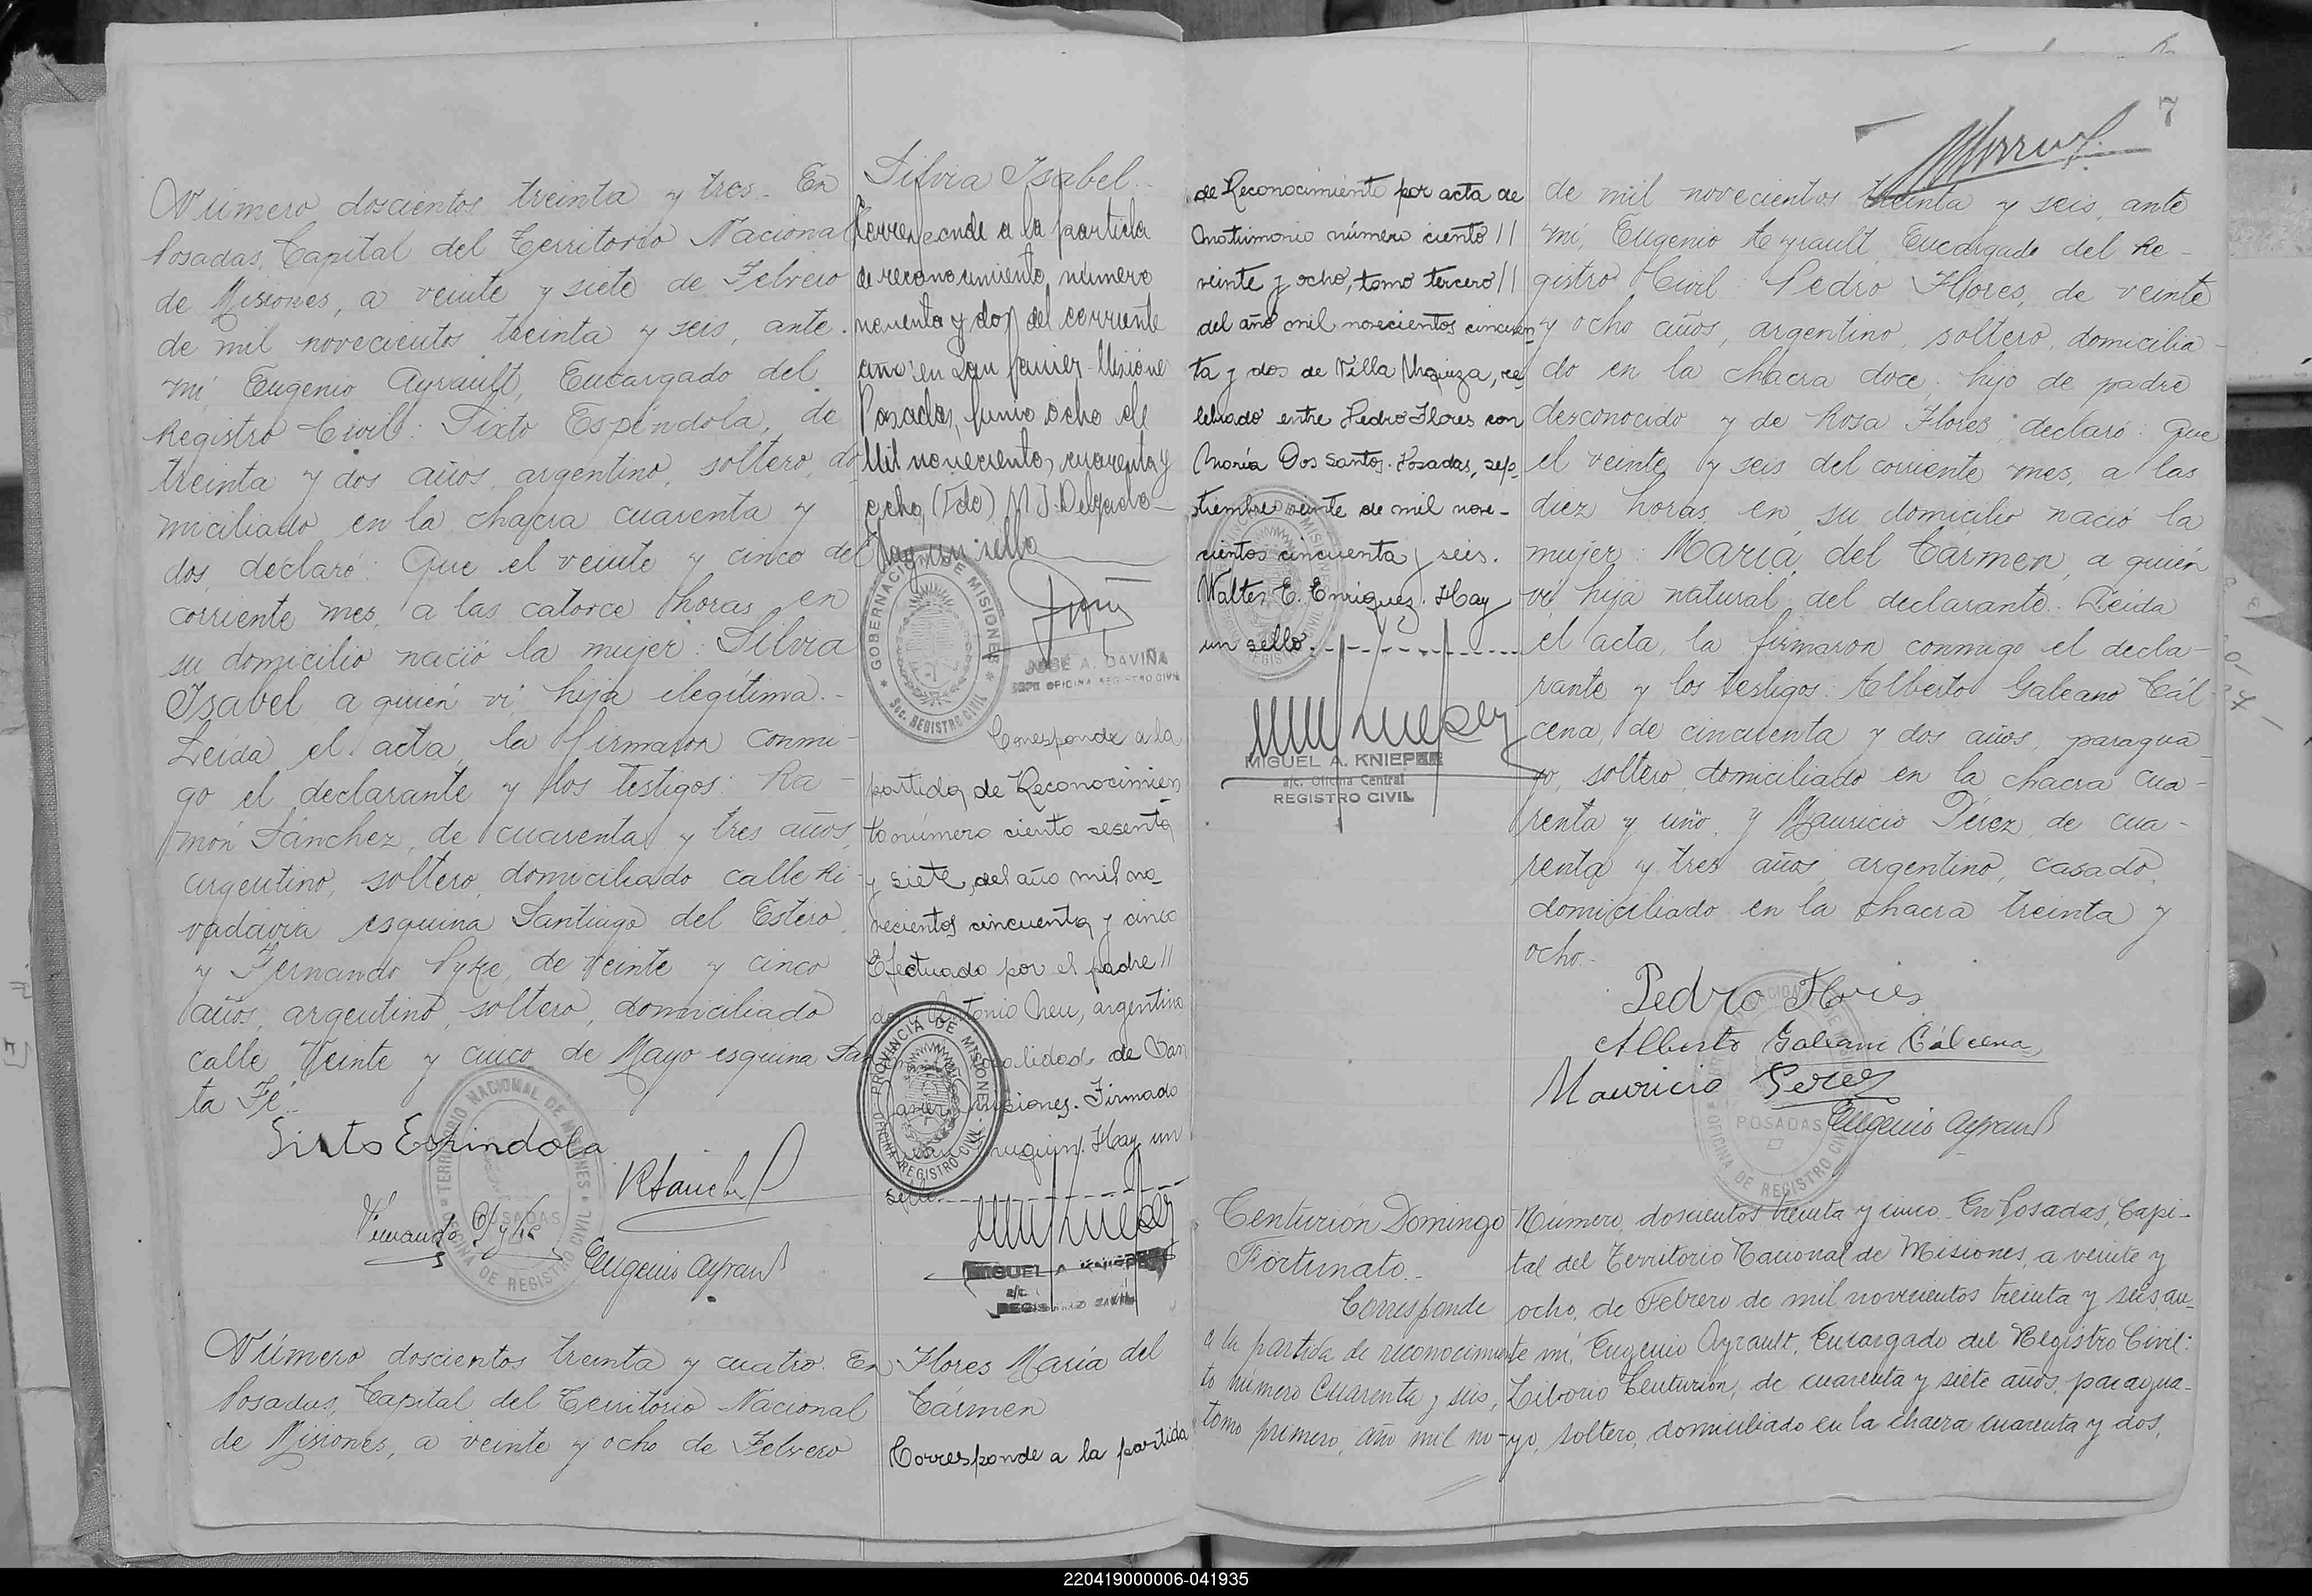 Número doscientos treinta y tres. En
Posadas, Capital del Territorio Nacional
de Misiones, a veinte y siete de Febrero
de mil novecientos treinta y seis, ante
mi, Eugenio Ayrault, Encargado del
Registro Civil: Sixto Espíndola, de
treinta y dos años, argentino, soltero, do
miciliado en la chacra cuarenta y
dos, declaró: Que el veinte y cinco del
corriente mes, a las catorce horas, en
su domicilio nació la mujer: Silvia
Isabel a quién vi, hija ilegítima.-
Leída el acta, la firmaron conmi-
go el declarante y los testigos: Ra-
món Sánchez, de cuarenta y tres años,
argentino, soltero, domiciliado calle Ri-
vadavia esquina Santiago del Estero,
y Fernando Pyke, de veinte y cinco
años, argentino, soltero, domiciliado
calle Veinte y cinco de Mayo esquina San
ta Fé.-
Sixto Espindola
RSanchez
Fernando Pyke
Eugenio Ayrault
TERRITORIO NACIONAL DE MISIONES
POSADAS
OFICINA DE REGISTRO CIVIL
Número doscientos treinta y cuatro. En
Posadas, Capital del Territorio Nacional
de Misiones, a veinte y ocho de Febrero
Silvia Isabel.-
Corresponde a la partida
de reconocimiento número
noventa y dos del corriente
año en San Javier-Misione
Posadas, Junio ocho de
Mil novecientos cuarenta y
ocho, (Fdo) M J. Delgado-
Hay un sello
GOBERNACION DE MISIONES
Sec. REGISTRO CIVIL
JOSE A. DAVIÑA
OFICINA REGISTRO CIVIL
Corresponde a la
partida de Reconocimien
to número ciento sesenta
y siete, del año mil no-
vecientos cincuenta y cinco
Efectuado por el padre //
Antonio Neu, argentino
de San
Javier Misiones. Firmado
Hay un
sello.
PROVINCIA DE MISIONES
OFICINA REGISTRO CIVIL
MIGUEL A. KNIEPER
a/c.
REGISTRO CIVIL
Flores María del
Cármen
Corresponde a la partida
7
de Reconocimiento por acta de
matrimonio número ciento //
veinte y ocho, tomo tercero //
del año mil novecientos cincuen
ta y dos de Villa Urquiza, ce
lebrado entre Pedro Flores con
María Dos Santos. Posadas, sep-
tiembre veinte de mil nove-
cientos cincuenta y seis.
Walter E. Enriquez. Hay
un sello.
MIGUEL A. KNIEPER
a/c. Oficina Central
REGISTRO CIVIL
de mil novecientos treinta y seis, ante
mi, Eugenio Ayrault, Encargado del Re-
gistro Civil: Pedro Flores, de veinte
y ocho años, argentino, soltero, domicilia-
do en la chacra doce, hijo de padre
desconocido y de Rosa Flores, declaró: Que
el veinte y seis del corriente mes, a las
diez horas en su domicilio nació la
mujer: María del Cármen, a quién
vi hija natural del declarante. Leída
el acta, la firmaron conmigo el decla-
rante y los testigos: Alberto Galeano Cál-
cena, de cincuenta y dos años, paragua-
yo, soltero, domiciliado en la chacra cua-
renta y uno, y Mauricio Pérez, de cua-
renta y tres años, argentino, casado,
domiciliado en la chacra treinta y
ocho.-
Pedro Flores
Alberto Galeano Cálcena
Mauricio Perez
Eugenio Ayrault
POSADAS
OFICINA DE REGISTRO CIVIL
Centurión Domingo
Fortunato.-
Corresponde
a la partida de reconocimien
to número cuarenta y seis,
tomo primero, año mil no-
Número doscientos treinta y cinco. En Posadas, Capi-
tal del Territorio Nacional de Misiones, a veinte y
ocho, de Febrero de mil novecientos treinta y seis, an-
te mi, Eugenio Ayrault, Encargado del Registro Civil:
Liborio Centurión, de cuarenta y siete años, paragua-
yo, soltero, domiciliado en la chacra cuarenta y dos,
220419000006-041935